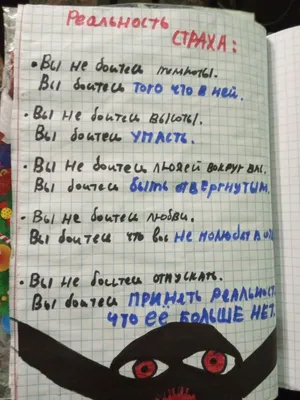 Реальность
СТРАХА:
• Вы не боитесь темноты.
Вы боитесь того что в ней.
• Вы не боитесь высоты.
Вы боитесь УПАСТЬ.
• Вы не боитесь людей вокруг вас.
Вы боитесь быть отвергнутым.
• Вы не боитесь любви.
Вы боитесь что вас не полюбят в
• Вы не боитесь отпускать.
Вы боитесь ПРИНЯТЬ РЕАЛЬНОСТ
ЧТО ЕЁ БОЛЬШЕ НЕТ.